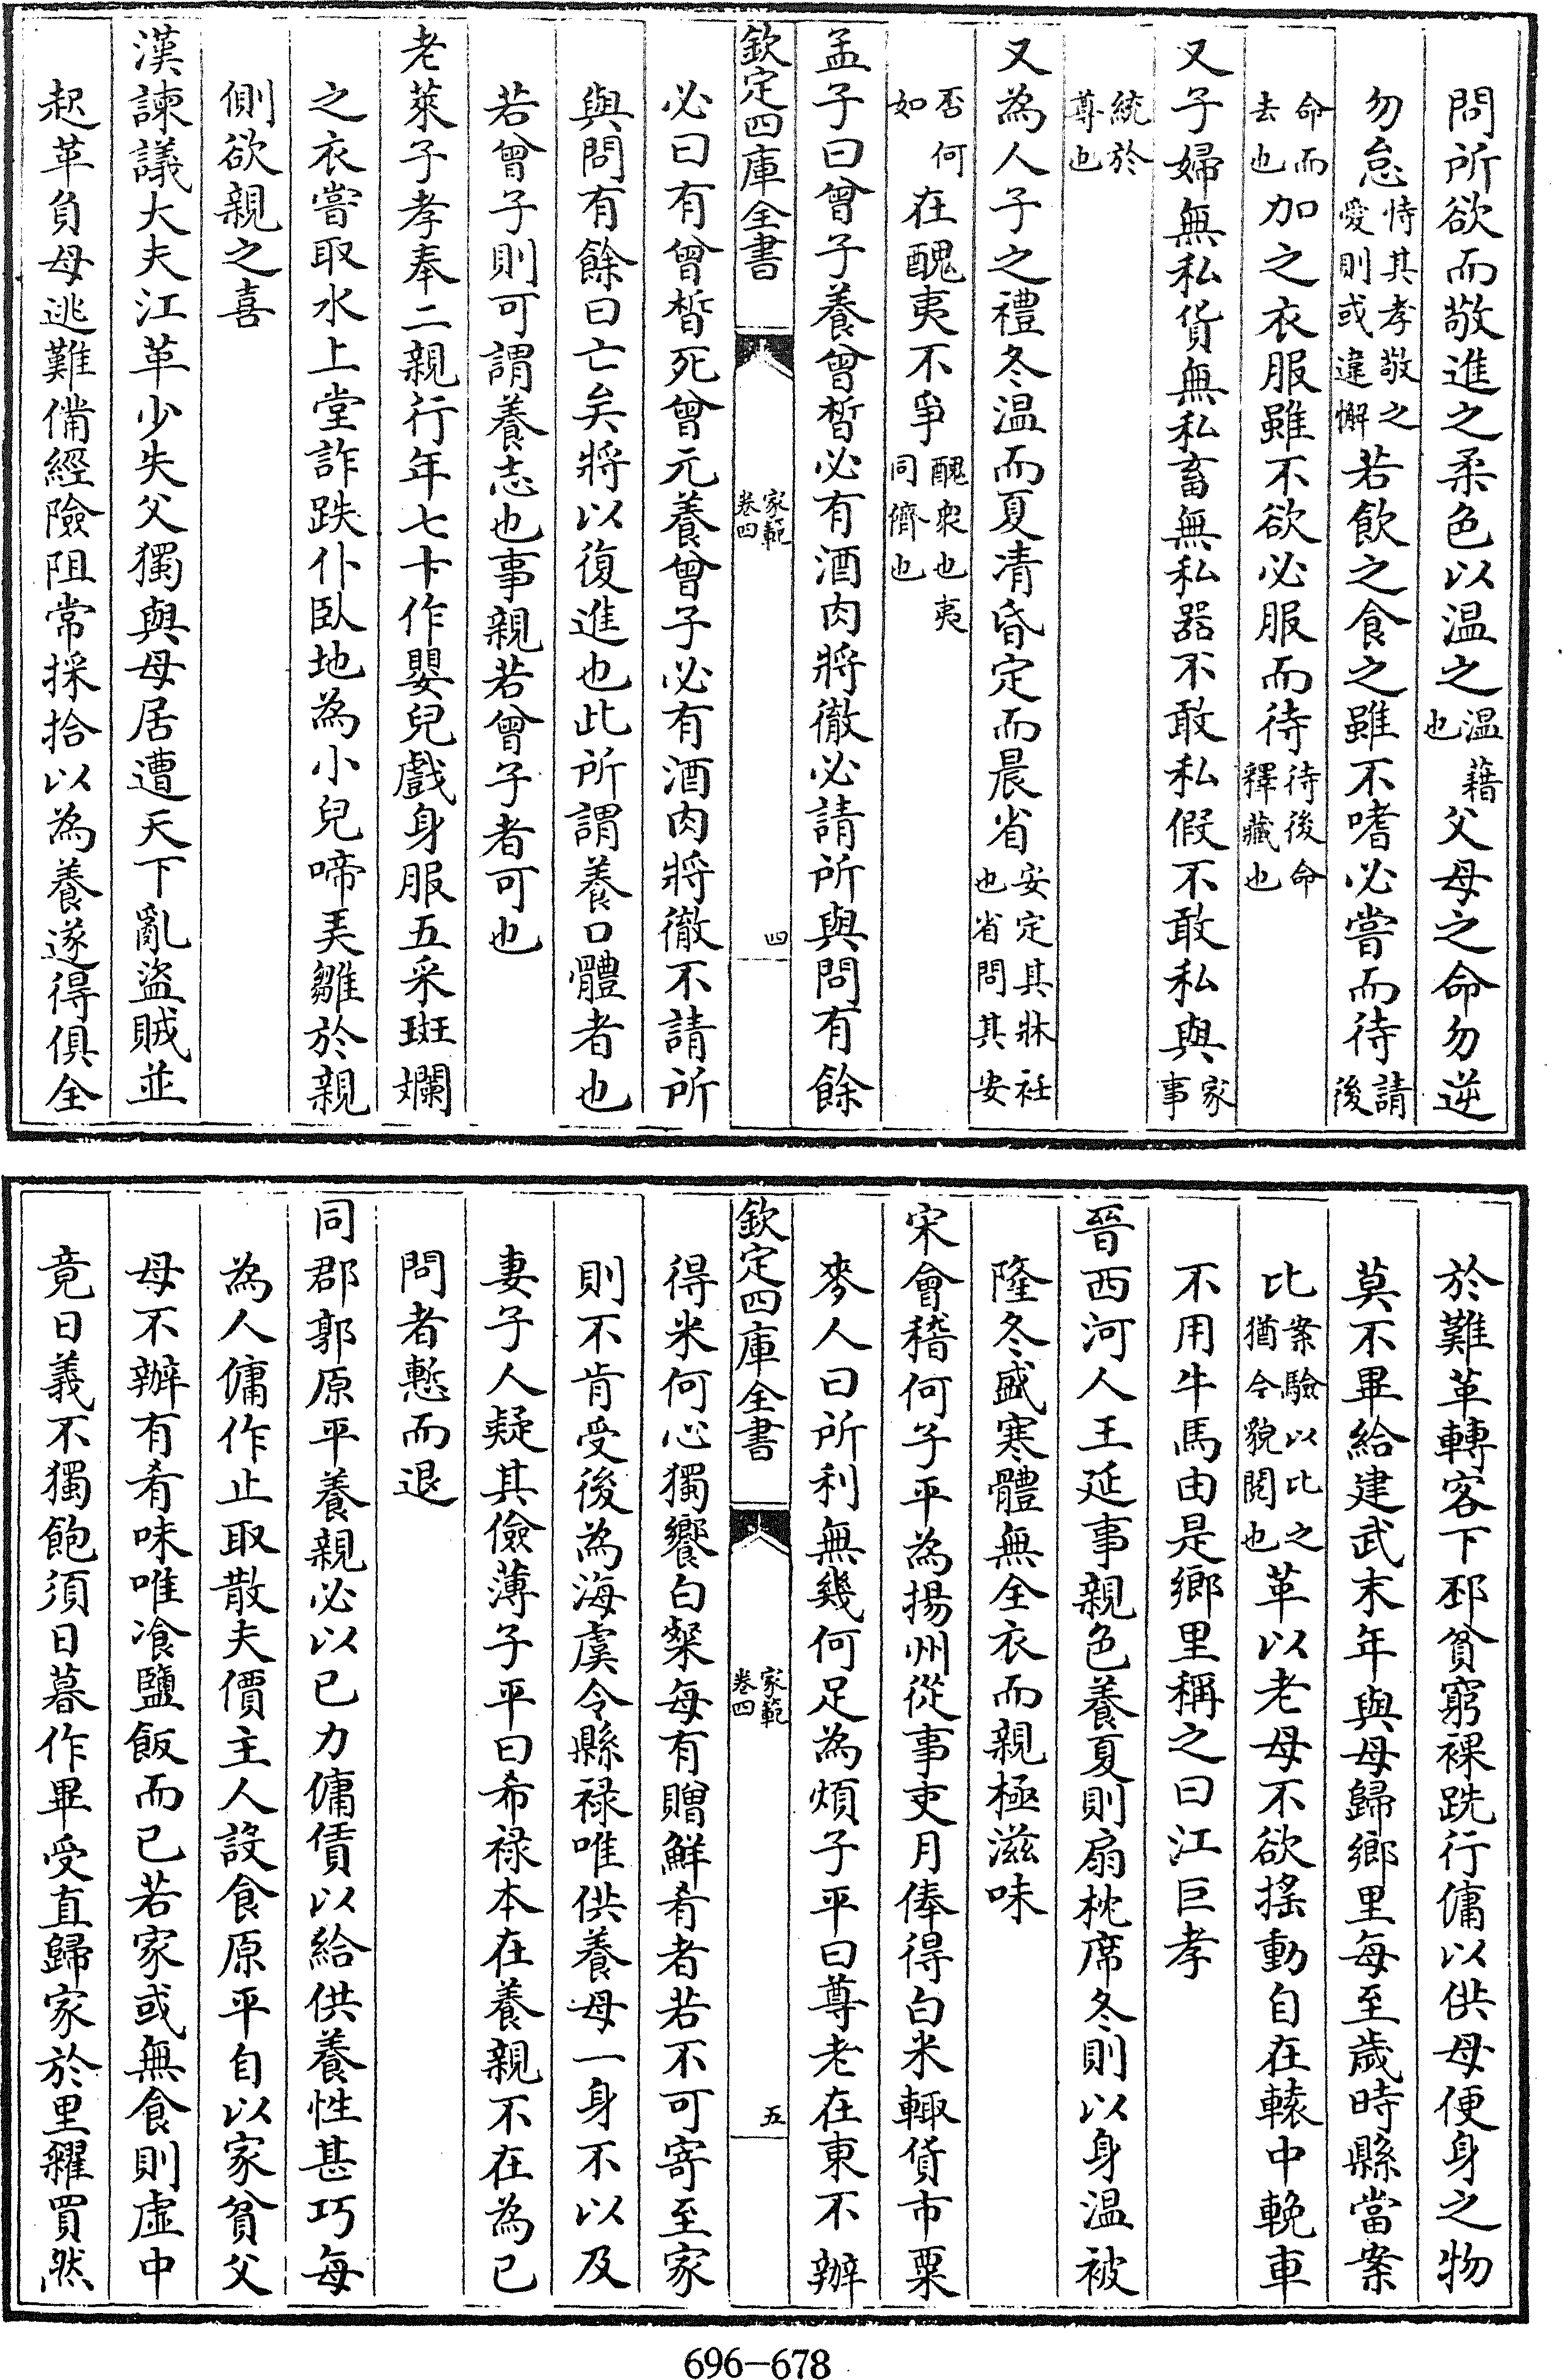 問所欲而敬進之柔色以温之温藉也父母之命勿逆
勿怠恃其孝敬之愛則或違懈若飲之食之雖不嗜必嘗而待請後
命而去也加之衣服雖不欲必服而待待後命釋藏也
又子婦無私貨無私畜無私器不敢私假不敢私與家事
統於尊也
又為人子之禮冬温而夏凊昏定而晨省安定其牀衽也省問其安
否何如在醜夷不爭醜衆也夷同儕也
孟子曰曾子養曾晳必有酒肉將徹必請所與問有餘
欽定四庫全書
家範
卷四
四
必曰有曾晳死曾元養曾子必有酒肉將徹不請所
與問有餘曰亡矣將以復進也此所謂養口體者也
若曾子則可謂養志也事親若曾子者可也
老萊子孝奉二親行年七十作嬰兒戲身服五采斑斕
之衣嘗取水上堂詐跌仆臥地為小兒啼弄雛於親
側欲親之喜
漢諫議大夫江革少失父獨與母居遭天下亂盜賊並
起革負母逃難備經險阻常採拾以為養遂得俱全
於難革轉客下邳貧窮裸跣行傭以供母便身之物
莫不畢給建武末年與母歸鄉里每至歲時縣當案
比案驗以比之猶今貌閱也革以老母不欲搖動自在轅中輓車
不用牛馬由是鄉里稱之曰江巨孝
晉西河人王延事親色養夏則扇枕席冬則以身温被
隆冬盛寒體無全衣而親極滋味
宋會稽何子平為揚州從事吏月俸得白米輙貨市粟
麥人曰所利無幾何足為煩子平曰尊老在東不辦
欽定四庫全書
家範
卷四
五
得米何心獨饗白粲每有贈鮮肴者若不可寄至家
則不肯受後為海虞令縣禄唯供養母一身不以及
妻子人疑其儉薄子平曰希禄本在養親不在為已
問者慙而退
同郡郭原平養親必以已力傭賃以給供養性甚巧每
為人傭作止取散夫價主人設食原平自以家貧父
母不辦有肴味唯飡鹽飯而已若家或無食則虛中
竟日義不獨飽須日暮作畢受直歸家於里糴買然
696-678